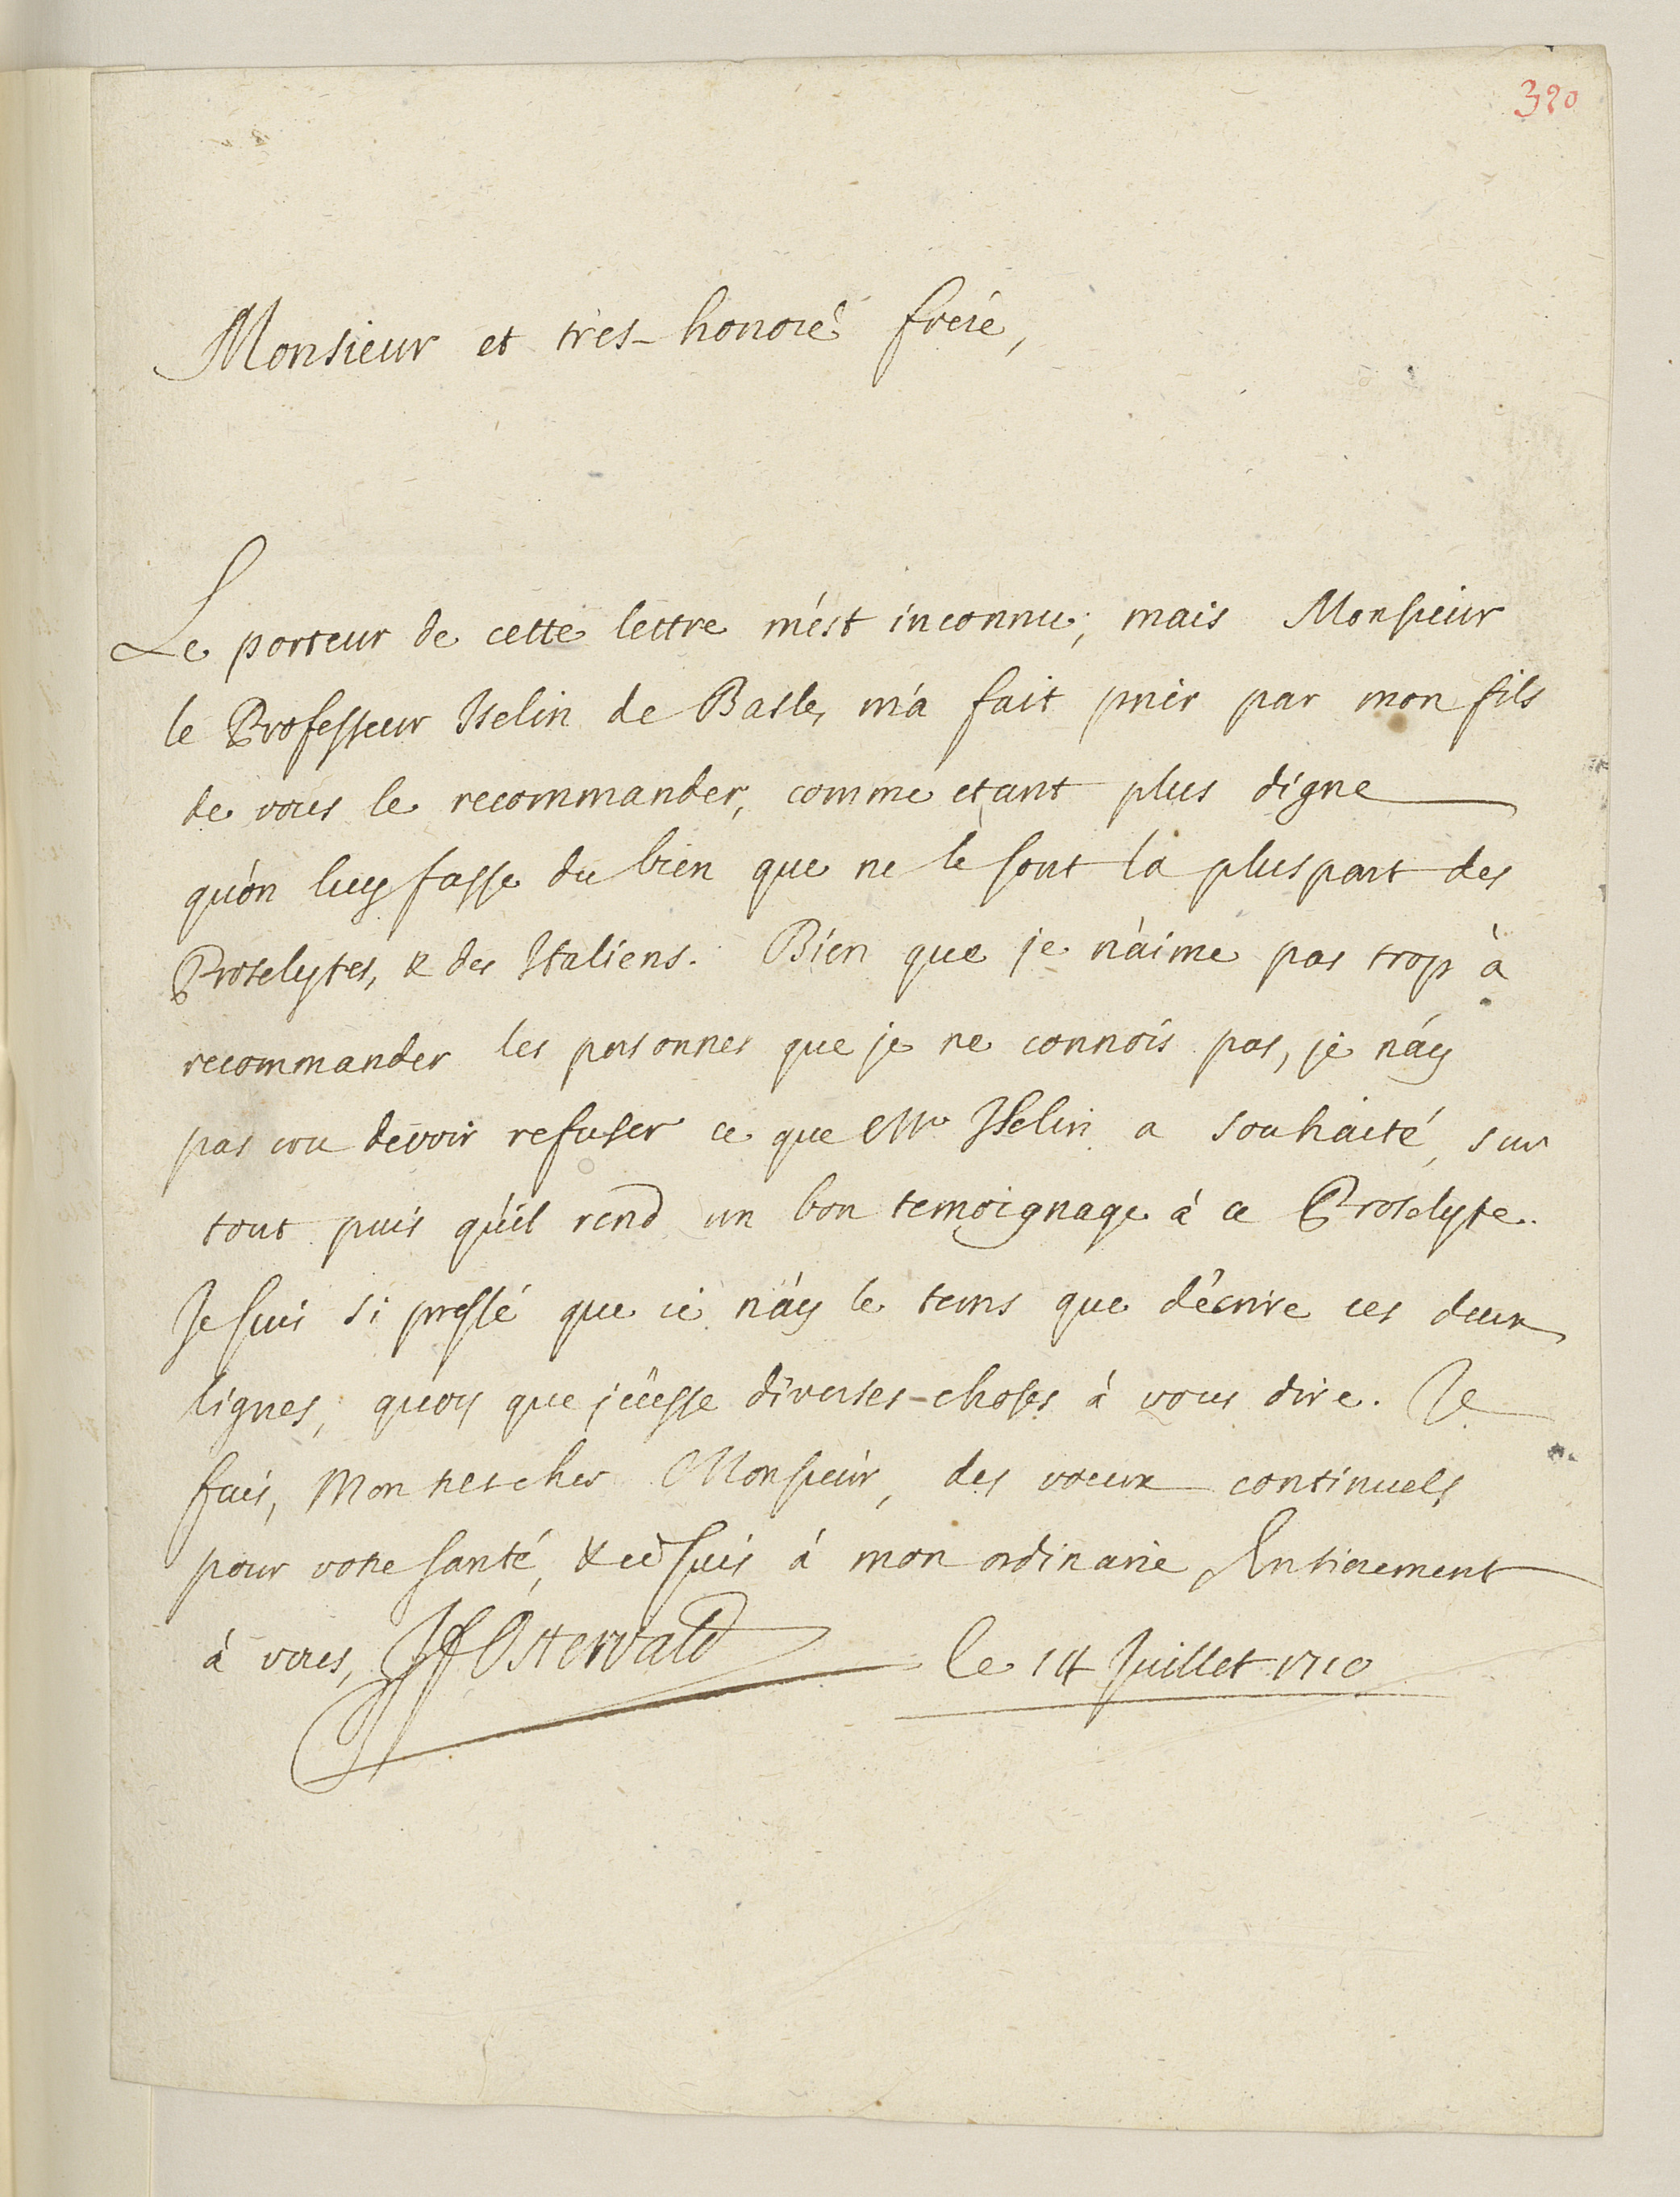 320
Monsieur et tres-honoré frere,
Le porteur de cette lettre m'est inconnu; mais Monsieur
le Professeur Iselin de Basle, m'a fait prier par mon fils
de vous le recommander, comme etant plus digne
qu'on luy fasse du bien que ne le sont la pluspart des
Proselytes, & des Italiens. Bien que je n'aime pas trop à
recommander les personnes que je ne connois pas, je n'ay
pas cru devoir refuser ce que Mr Iselin a souhaité, sur
tout puis qu'il rend un bon temoignage à ce Proselyte.
Je suis si pressé que je n'ay le tems que d'écrire ces deux
lignes, quoy que j'eüsse diverses choses à vous dire. Je
fais, Mon tres cher Monsieur, des voeux continuels
pour votre santé, & je suis à mon ordinaire Entierement
à vous, JFOstervald le 14 Juillet 1710